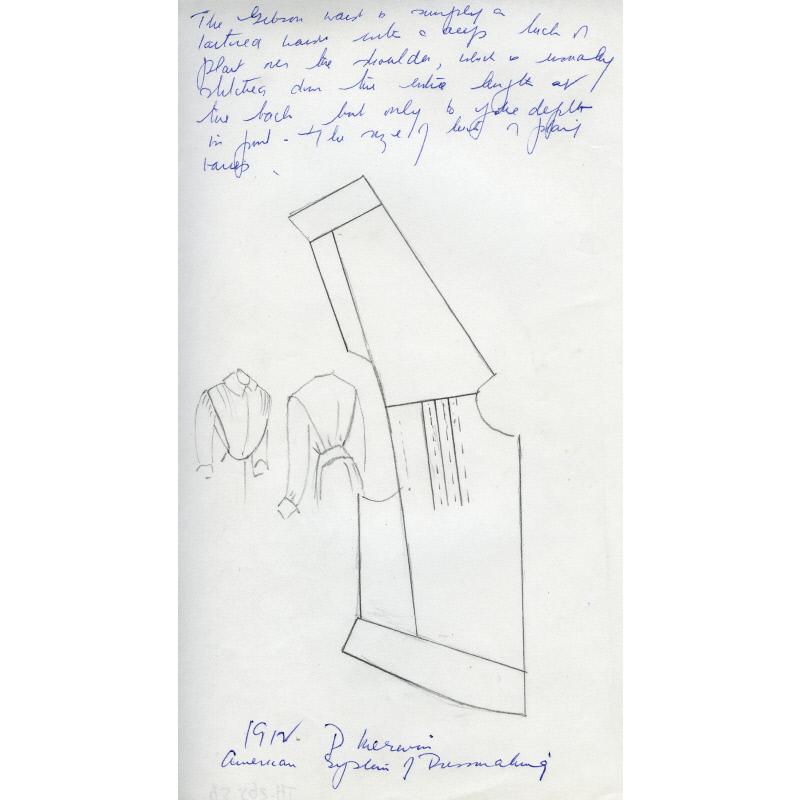 The Gibson waist is simply a
tailored waist with a deep tuck or
pleat over the shoulder, which is usually
stitched down the entire length at
the back but only to yoke depth
in front - The size of tuck or plait
varies.
1912. P Merwin
American System of Dressmaking